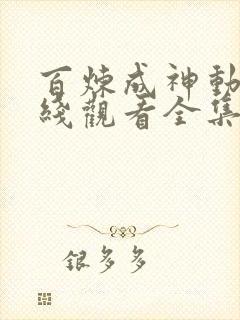 百炼成神動
綫觀看全集
银多多